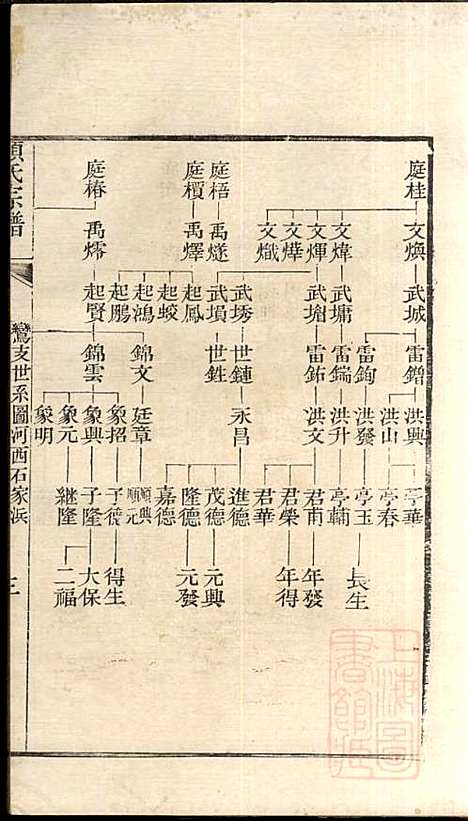 庭桂 庭梧 庭檟 庭椿
文煥 文煒 文煇 文燁 文熾 禹燧 禹燡 禹㷠
武城 武墉 武㙷 武㙾 武塤 起鳳 起蛟 起鴻 起鵬 起賢
雷鐕 雷鉤 雷鍴 雷鉐 世鏈 世鉎 錦文 錦雲
洪興 洪山 洪發 洪升 洪文 永昌 廷章 象招 象興 象元 象明
亭華 亭春 亭玉 亭輔 君甫 君榮 君華 進德 茂德 隆德 嘉德 順興 順元 子德 子隆 繼隆
長生 年發 年得 元興 元發 得生 大保 二福
氏宗譜
鸞支世系圖河西石家浜
上海圖書館藏